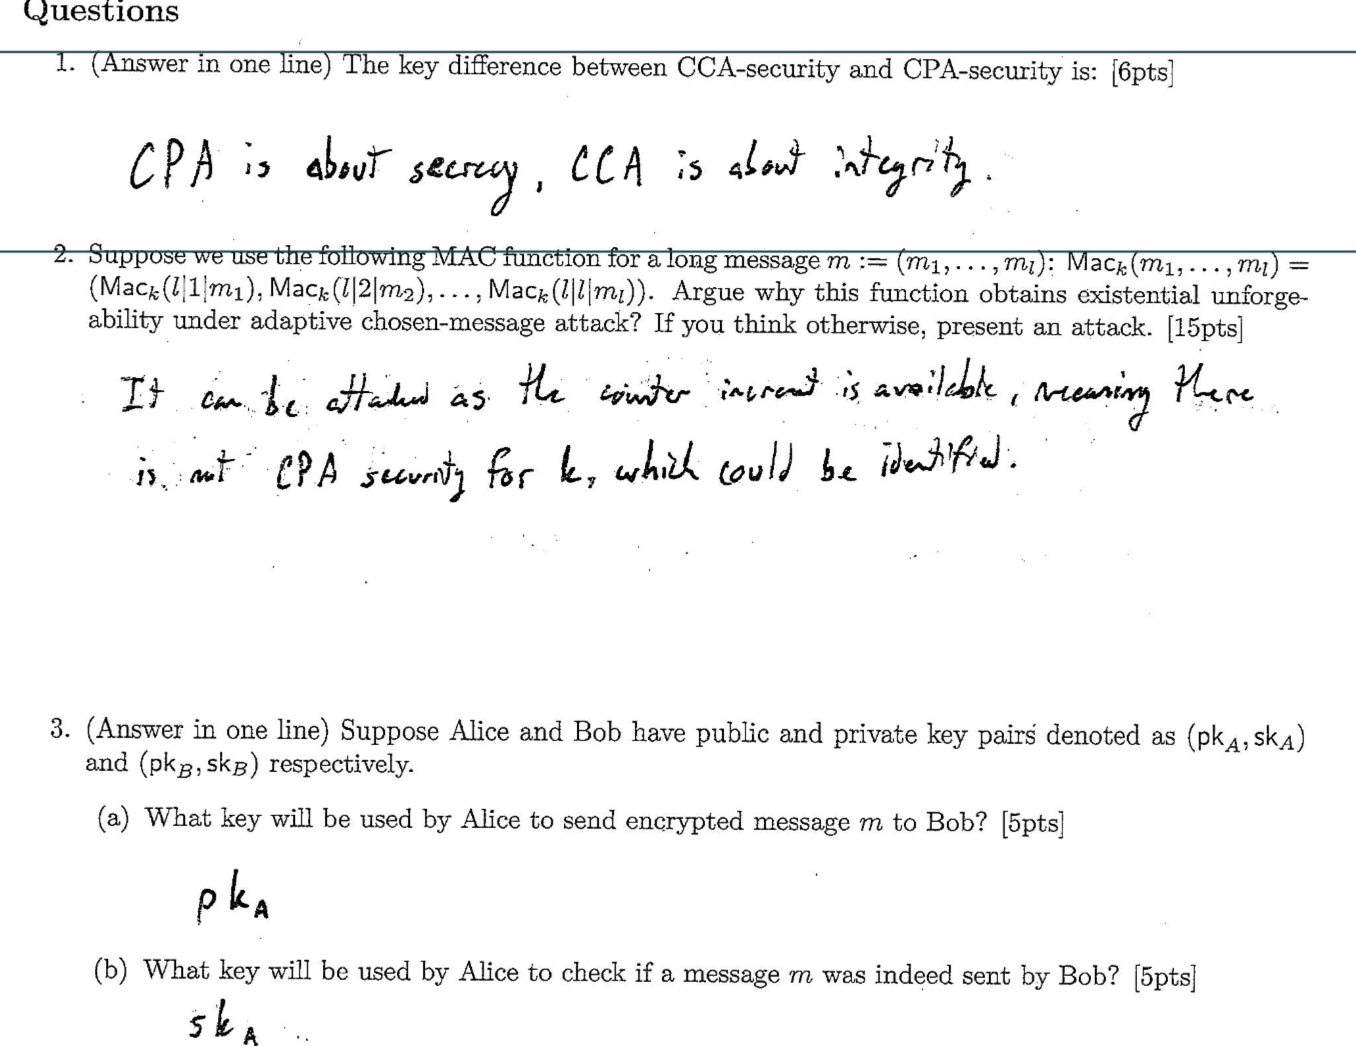 Questions
1. (Answer in one line) The key difference between CCA-security and CPA-security is: [6pts]
CPA is about secrecy, CCA is about integrity.
2. Suppose we use the following MAC function for a long message m := (m₁, . . . , mₗ): Macₖ(m₁, . . . , mₗ) =
(Macₖ(l|1|m₁), Macₖ(l|2|m₂), . . . , Macₖ(l|l|mₗ)). Argue why this function obtains existential unforge-
ability under adaptive chosen-message attack? If you think otherwise, present an attack. [15pts]
It can be attacked as the counter is available, meaning there
is not CPA security for k, which could be identified.
3. (Answer in one line) Suppose Alice and Bob have public and private key pairs denoted as (pk_A, sk_A)
and (pk_B, sk_B) respectively.
(a) What key will be used by Alice to send encrypted message m to Bob? [5pts]
pk_A
(b) What key will be used by Alice to check if a message m was indeed sent by Bob? [5pts]
sk_A